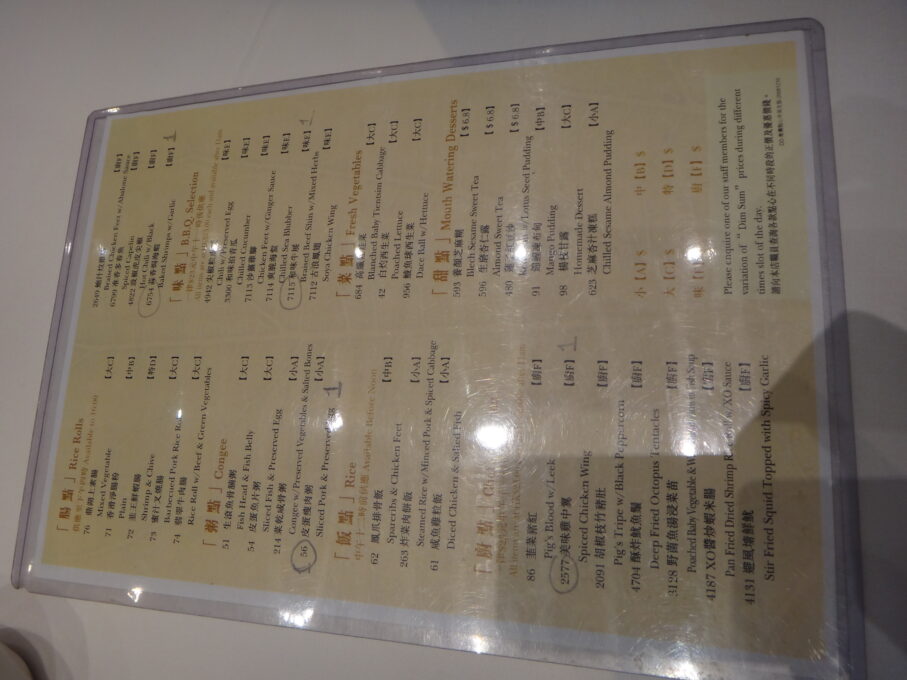 「腸 點」Rice Rolls
76
Baked Vegetable
71 香滑淨腸粉 【大C】
Plain
72 韭王鮮蝦腸 【中B】
Shrimp & Chive
73 蜜汁叉燒腸 【特D】
Barbecued Pork Rice Roll
74 翡翠牛肉腸 【大C】
Rice Roll w/Beef & Green Vegetables
「粥 點」Congee
51 【大C】
Fish Head & Fish Belly
54 花蛋魚片粥 【大C】
Sliced Fish & Preserved Egg
214 菜乾咸骨粥 【小A】
Congee w/Preserved Vegetables & Salted Bones
56 皮蛋瘦肉粥 【小A】
Sliced Pork & Preserved Egg 1
「飯 點」Rice
Available Before Noon
62 鳳爪排骨飯 【中B】
Spareribs & Chicken Feet
263 炸菜肉餅飯 【小A】
Steamed Rice w/Minced Pork & Spiced Cabbage
61 咸魚雞粒飯 【小A】
Diced Chicken & Salted Fish
「廚 點」
86 韮菜豬紅 【廚F】
Pig's Blood w/Leek
2577 美味雞中翼 【廚F】 1
Spiced Chicken Wing
2091 胡椒枝竹豬肚 【廚F】
Pig's Tripe w/Black Peppercorn
4704 酥炸魷魚鬚 【廚F】
Deep Fried Octopus Tentacles
3128 野菌魚湯浸菜苗 【廚F】
Poached Baby Vegetable & Fish Soup
4187 XO醬煎蝦米腸 【廚F】
Pan Fried Dried Shrimp Rice Roll w/ XO Sauce
4131 避風塘鮮魷 【廚F】
Stir Fried Squid Topped with Spicy Garlic
2649 【廚F】
Braised Chicken Feet w/Abalone Sauce
6799 【廚F】
Spiced
4822 【廚F】
Hot Chili w/Black
6754 【廚F】 1
Baked Shrimps w/Garlic
「味 點」B.B.Q. Selection
4942 【味E】
Chili w/Preserved Egg
3300 和味拍青瓜 【味E】
Chilled Cucumber
7113 沙薑雞腳 【味E】
Chicken Feet w/Ginger Sauce
7114 爽脆海蜇 【味E】
Chilled Sea Blubber
7115 【味E】 1
Braised Beef Shin w/Mixed Herbs
7112 古法鳳翅 【味E】
Soya Chicken Wing
「菜 點」Fresh Vegetables
684 【大C】
Blanched Baby Tientsim Cabbage
42 白灼西生菜 【大C】
Poached Lettuce
956 鯪魚球西生菜 【大C】
Dace Ball w/Lettuce
「甜 點」Mouth Watering Desserts
593 養顏芝麻糊 【$6.8】
Blech Sesame Sweet Tea
596 生磨杏仁露 【$6.8】
Almond Sweet Tea
480 【$6.8】
& Lotus Seed Pudding
91 【中B】
Mango Pudding
98 楊枝甘露 【大C】
Homemade Dessert
623 芝麻杏汁凍糕 【小A】
Chilled Sesame Almond Pudding
小【A】$ 中【B】$
大【C】$ 特【D】$
味【E】$ 廚【F】$
Please enquire one of our staff members for the
variation of " Dim Sum " prices during different
times slot of the day.
請向本店職員查詢各款點心在不同時段的正價及優惠價錢。